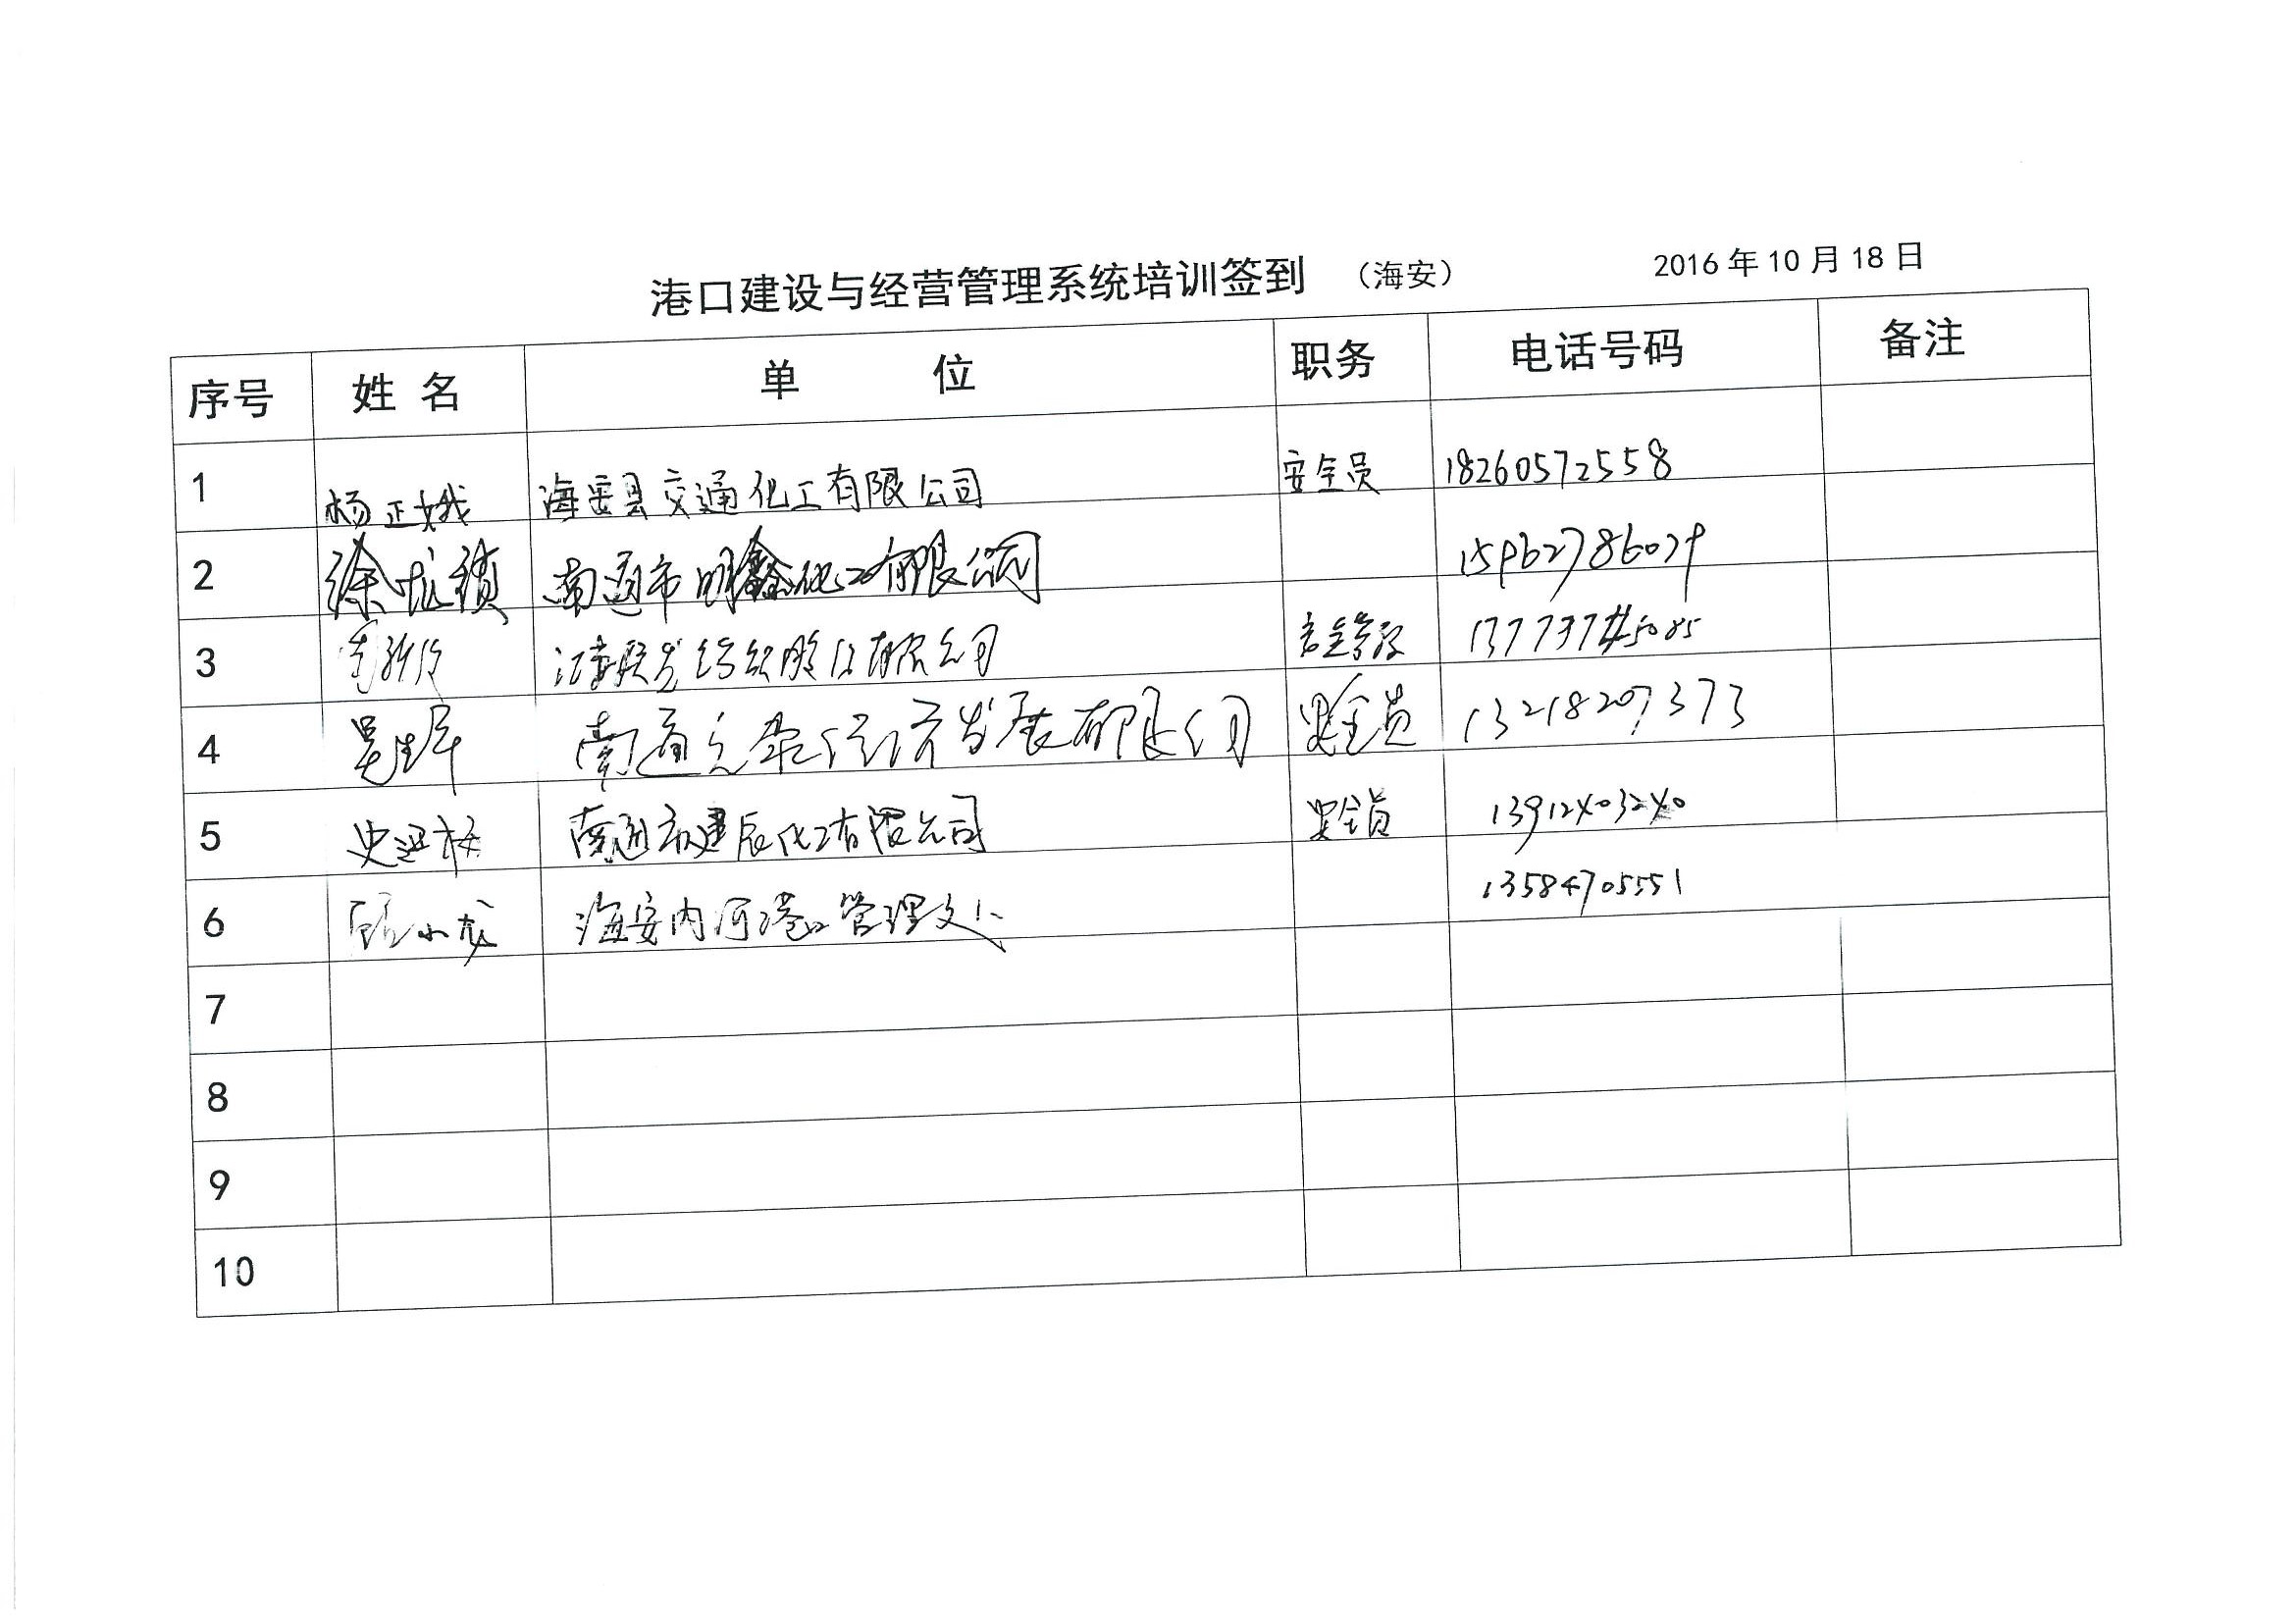 港口建设与经营管理系统培训签到 （海安） 2016年10月18日
序号 姓 名 单 位 职务 电话号码 备注
1 杨正娥 海安县交通化工有限公司 安全员 18260572558
2 徐龙锁 南通市明鑫化工有限公司 15962786079
3 江苏联发纺织股份有限公司
4 吴生军 南通 经济发展有限公司 安全员 13218207373
5 史迎梅 南通市建辰化工有限公司 安全员 13912403240
6 顾小龙 海安内河港口管理处 13584705551
7
8
9
10